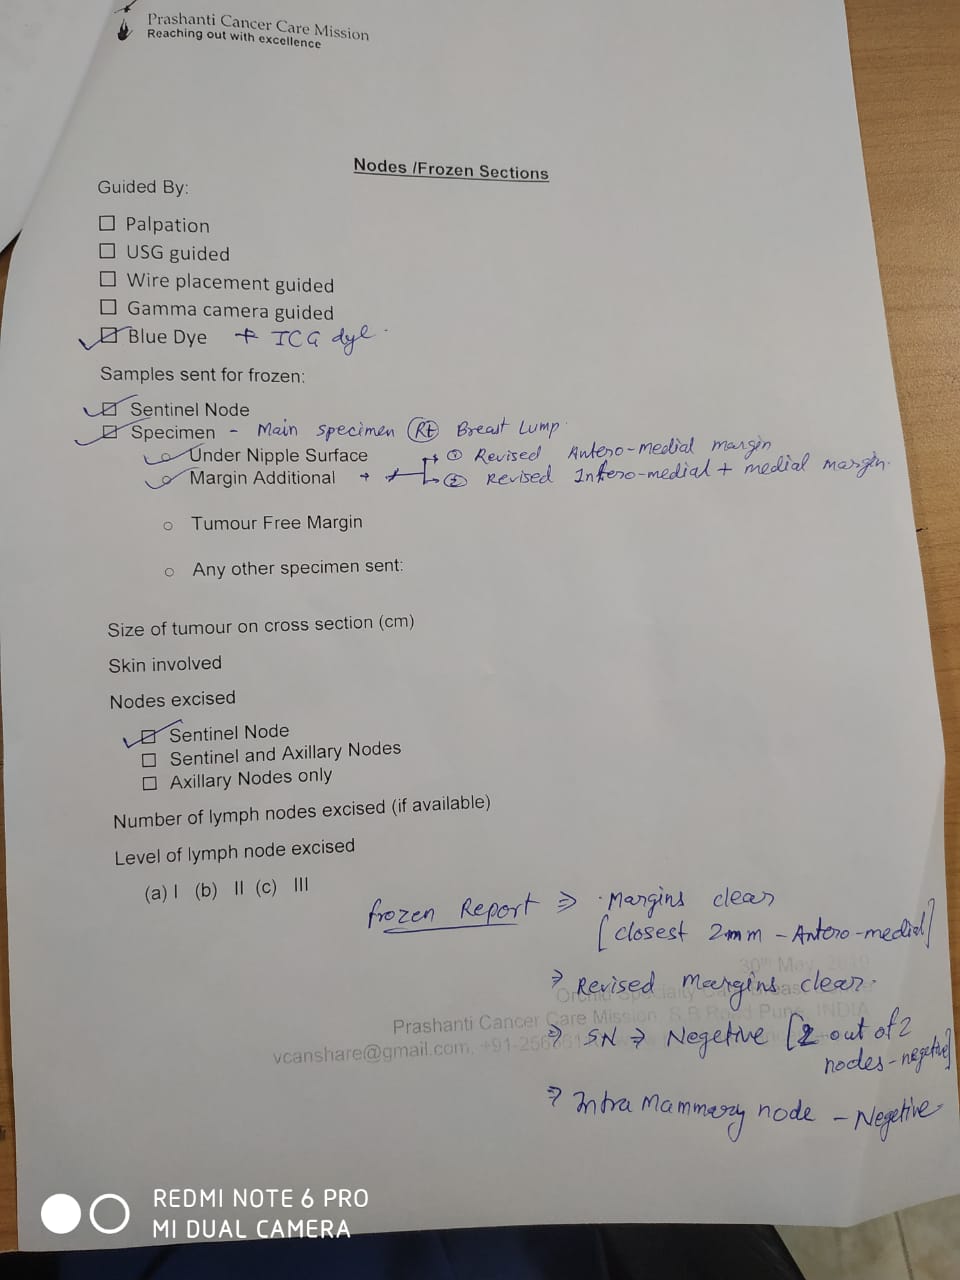 Prashanti Cancer Care Mission
Reaching out with excellence
Nodes /Frozen Sections
Guided By:
☐ Palpation
☐ USG guided
☐ Wire placement guided
☐ Gamma camera guided
☑ Blue Dye + ICG dye.
Samples sent for frozen:
☑ Sentinel Node
☑ Specimen - Main specimen (Rt) Breast Lump.
Under Nipple Surface
① Revised Antero-medial margin
Margin Additional → ② Revised Infero-medial + medial margin.
○ Tumour Free Margin
○ Any other specimen sent:
Size of tumour on cross section (cm)
Skin involved
Nodes excised
☑ Sentinel Node
☐ Sentinel and Axillary Nodes
☐ Axillary Nodes only
Number of lymph nodes excised (if available)
Level of lymph node excised
(a) I (b) II (c) III
frozen Report ⇒ Margins clear
[closest 2mm - Antero-medial]
30th May,
⇒ Revised Margins clear.
Prashanti Cancer Care Mission, Pune, INDIA
⇒ SN ⇒ Negetive [2 out of 2
nodes - negetive]
vcanshare@gmail.com,
⇒ Intra Mammary node - Negetive
REDMI NOTE 6 PRO
MI DUAL CAMERA